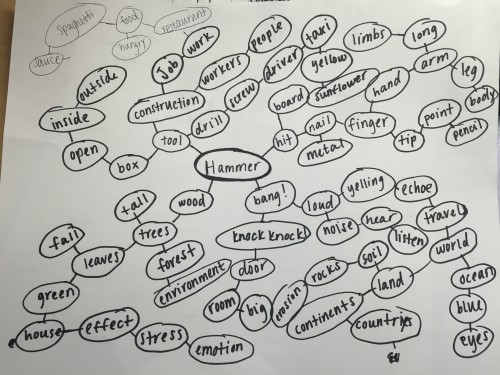 spaghetti
food
restaurant
sauce
hungry
work
people
taxi
limbs
long
outside
Job
workers
driver
yellow
arm
leg
construction
screw
board
sunflower
hand
body
inside
drill
nail
finger
point
open
tool
hit
metal
tip
pencil
box
Hammer
tall
wood
bang!
loud
yelling
echoe
fall
trees
knock knock!
noise
hear
travel
leaves
forest
listen
world
environment
door
rocks
soil
land
ocean
green
room
big
erosion
continents
blue
house
effect
stress
countries
emotion
eyes